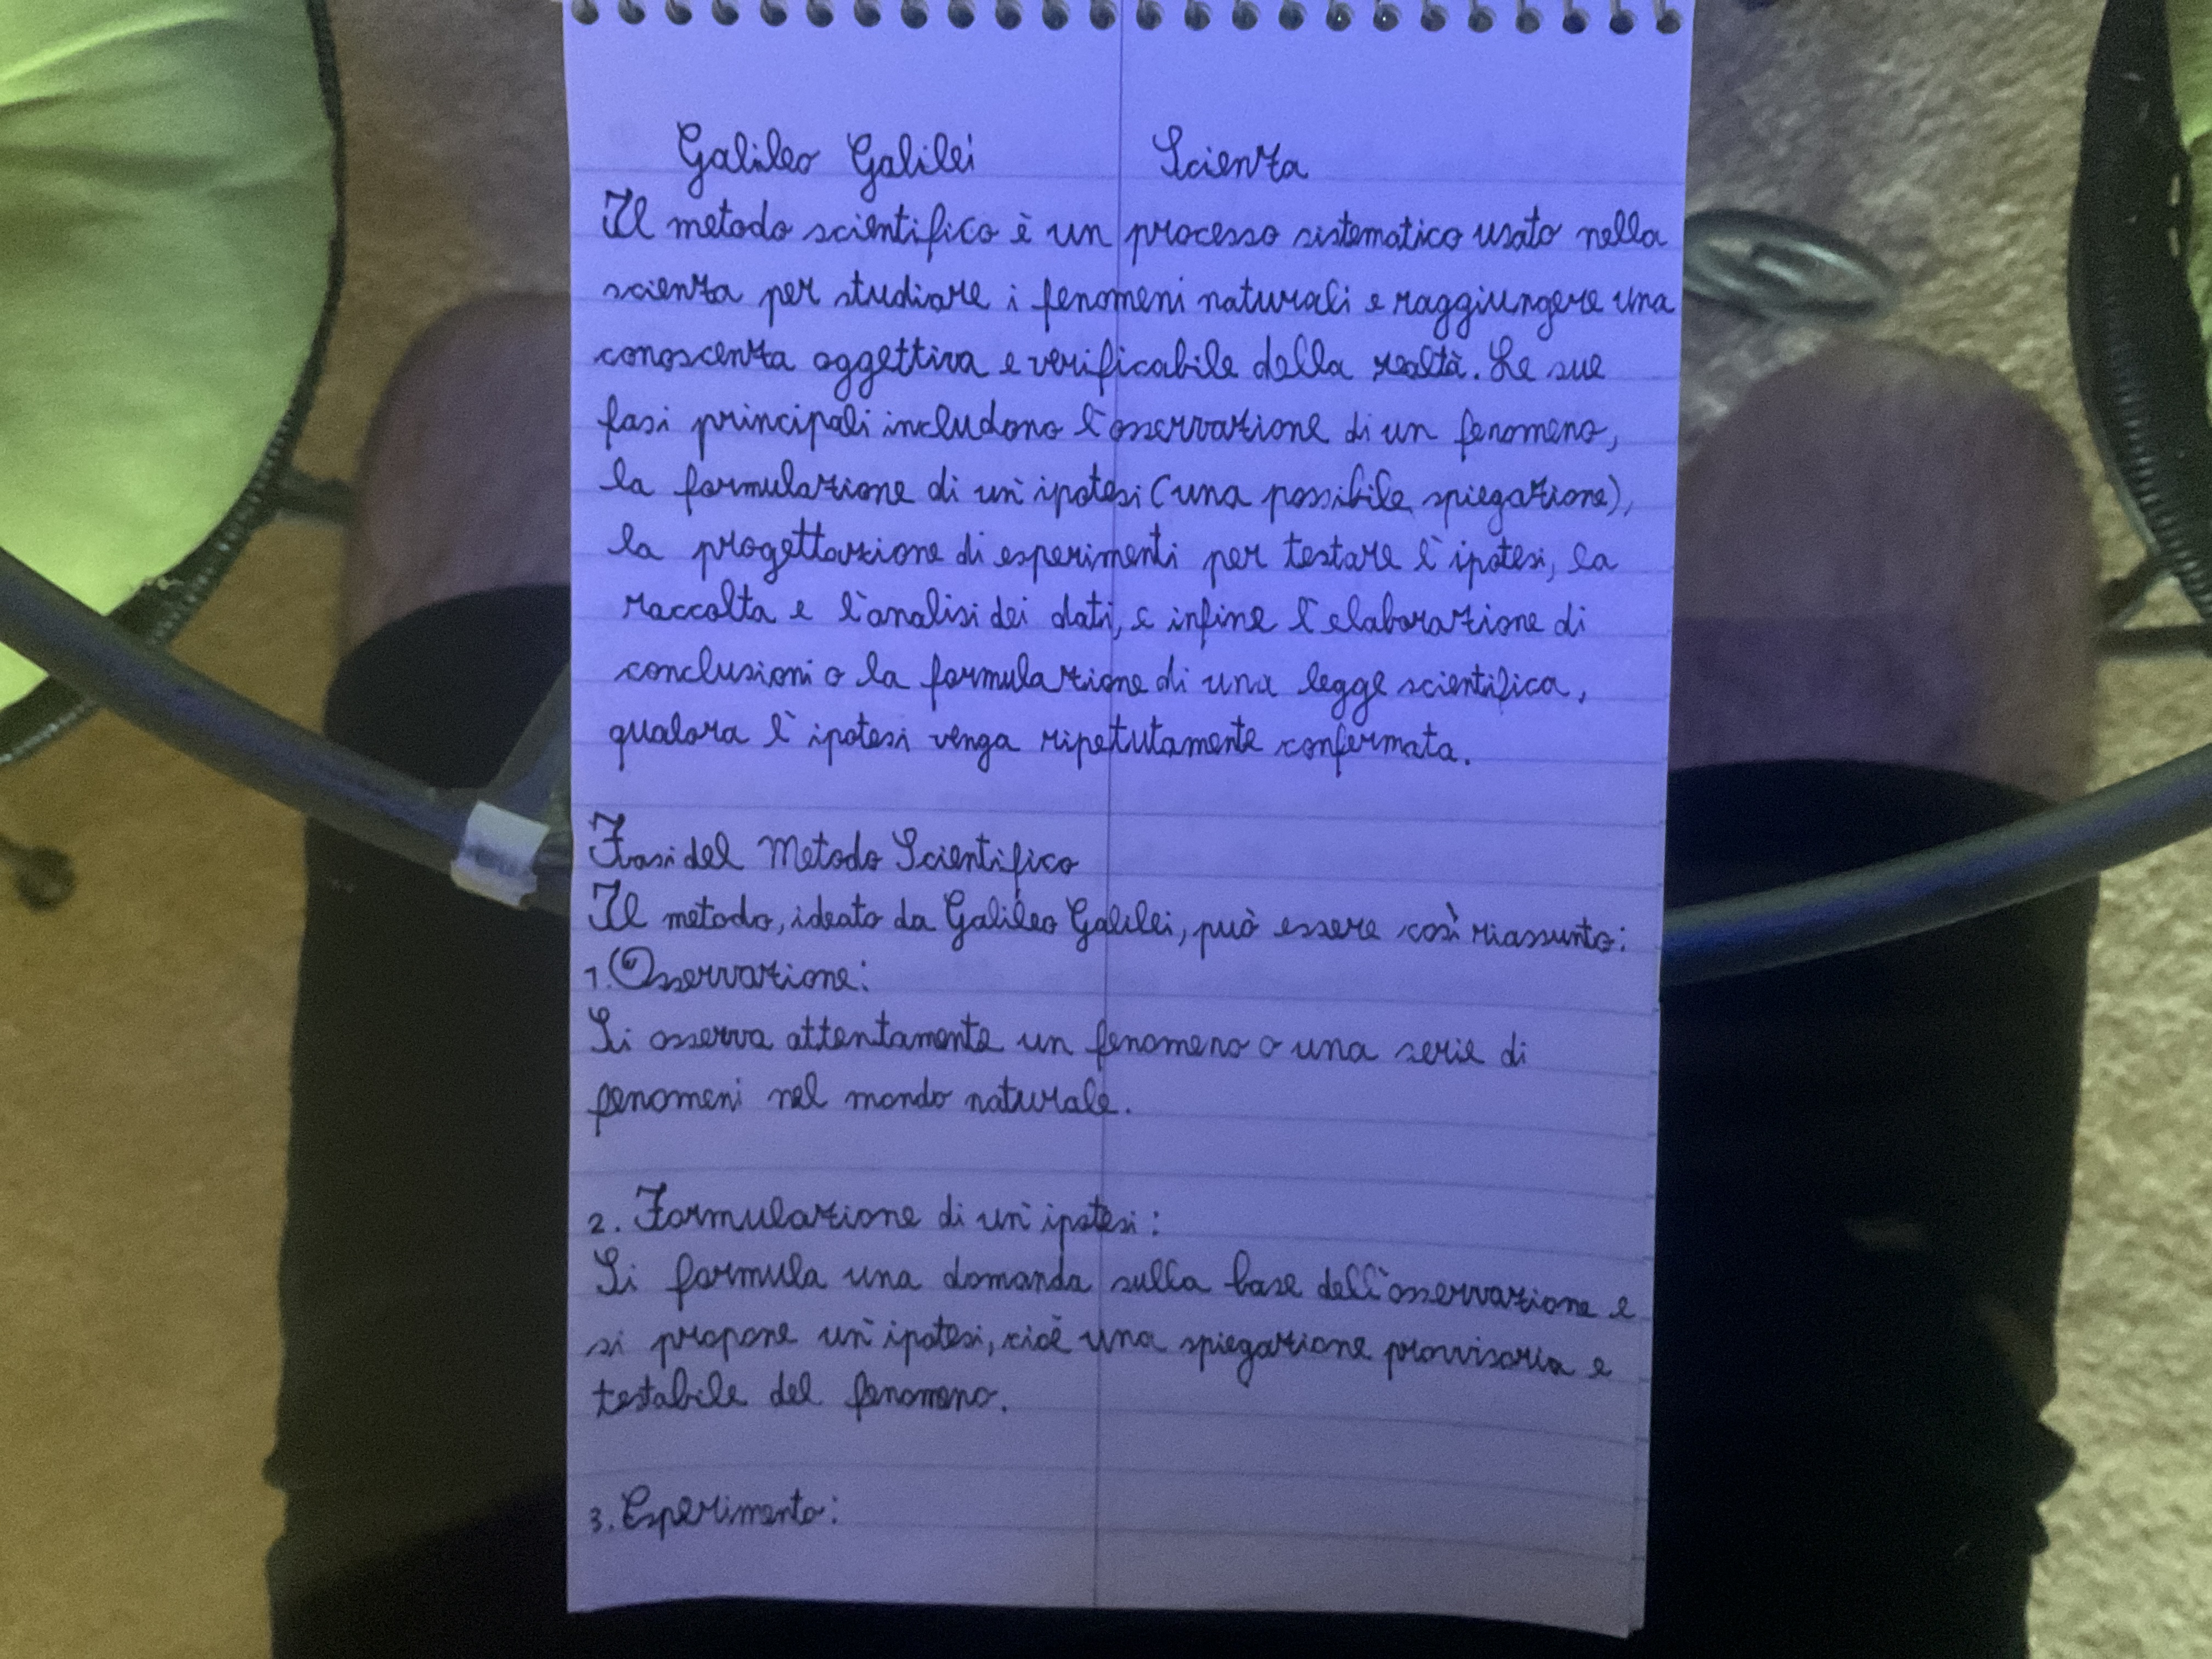 Galileo Galilei Scienza
Il metodo scientifico è un processo sistematico usato nella
scienza per studiare i fenomeni naturali e raggiungere una
conoscenza oggettiva e verificabile della realtà. Le sue
fasi principali includono l'osservazione di un fenomeno,
la formulazione di un'ipotesi (una possibile spiegazione),
la progettazione di esperimenti per testare l'ipotesi, la
raccolta e l'analisi dei dati, e infine l'elaborazione di
conclusioni o la formulazione di una legge scientifica,
qualora l'ipotesi venga ripetutamente confermata.
Fasi del Metodo Scientifico
Il metodo, ideato da Galileo Galilei, può essere così riassunto:
1. Osservazione:
Si osserva attentamente un fenomeno o una serie di
fenomeni nel mondo naturale.
2. Formulazione di un'ipotesi:
Si formula una domanda sulla base dell'osservazione e
si propone un'ipotesi, cioè una spiegazione provvisoria e
testabile del fenomeno.
3. Esperimento: